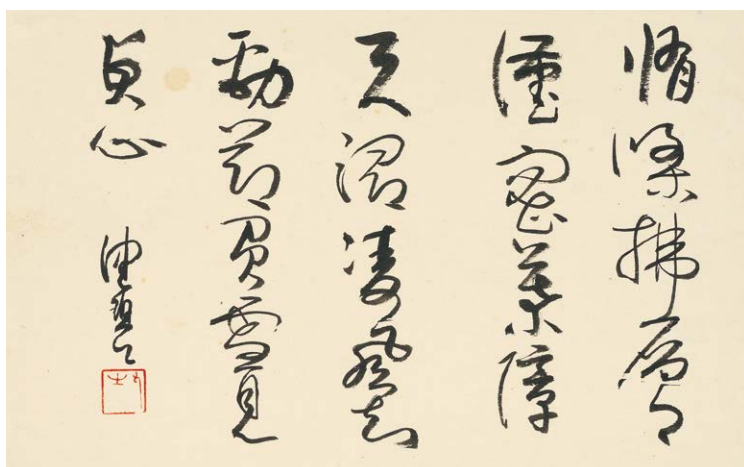 脩條拂層
漢密葉障
天潯凌風知
勁節負雪見
貞心